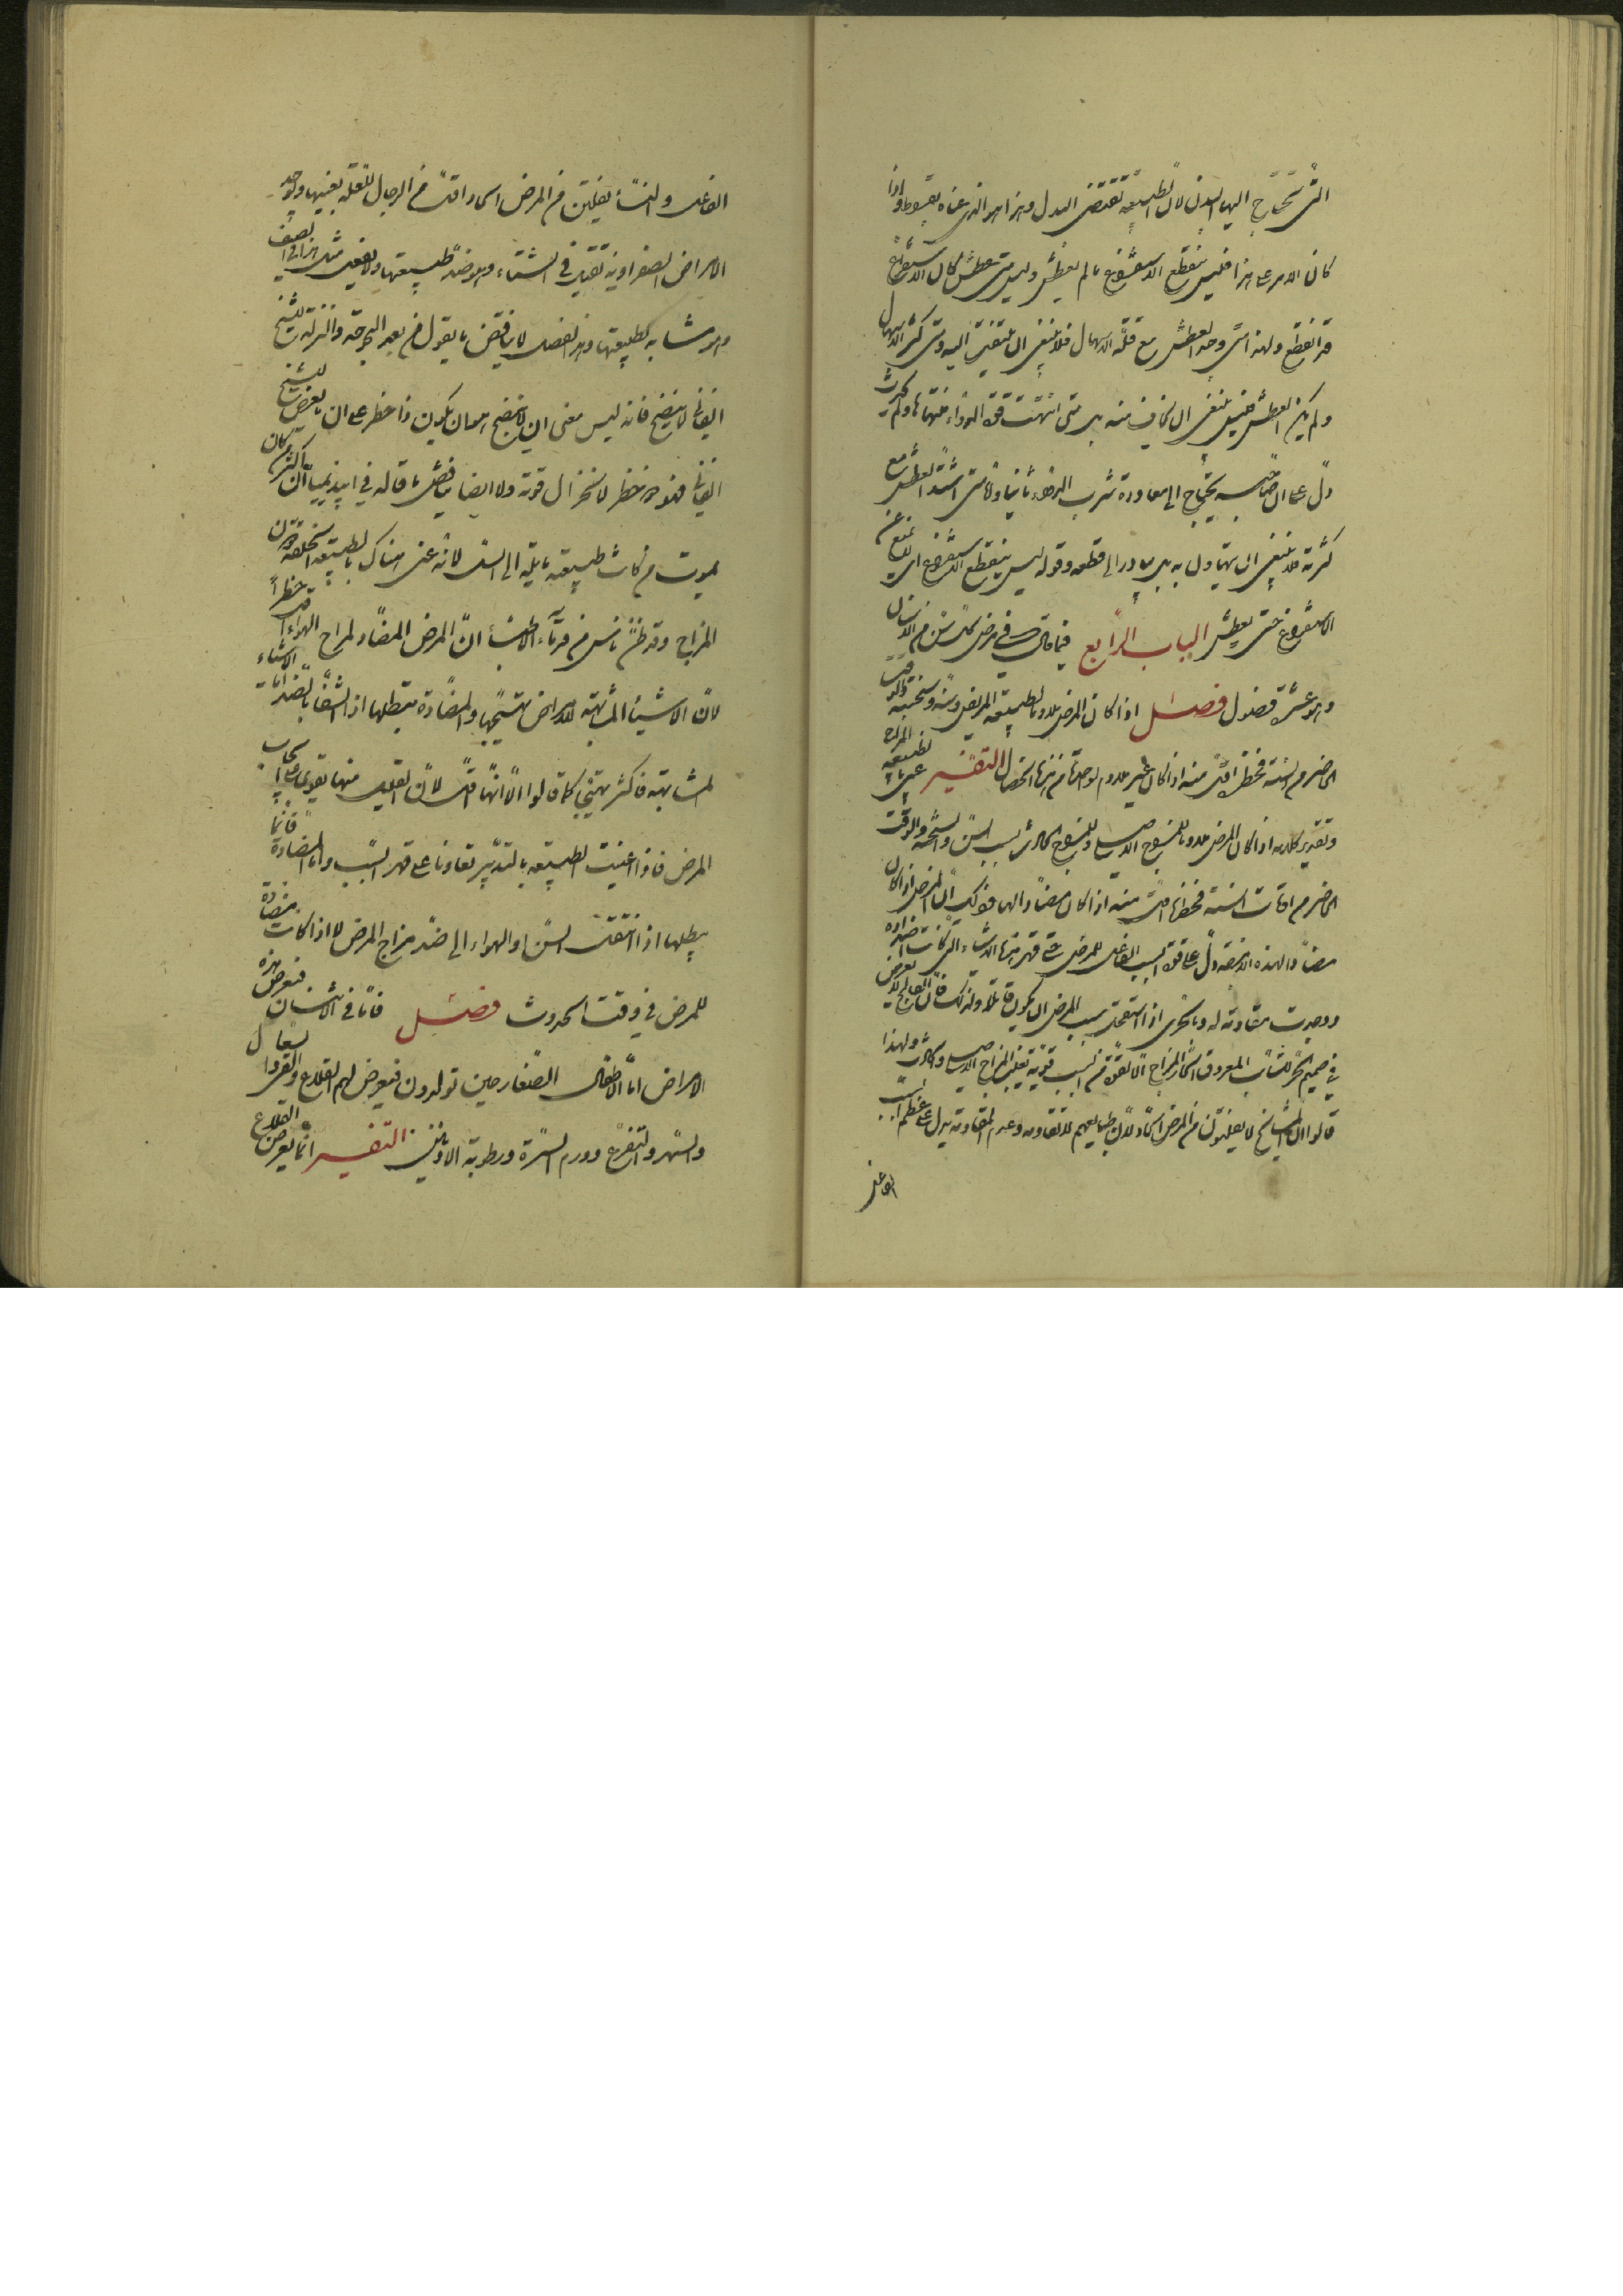 التي تحتاج اليها البدن لان الطبيعة تقتضي البدل وهذا هو الذي عناه بقسوط واذا
كان الامر على هذا فليس ينقطع الاستفراغ ما لم يعطش وليس متى عطش كان الاستفراغ
قد انقطع ولهذا متى وجد العطش مع قلة الاسهال فلا ينبغي ان يلتفت اليه ومتى كثر الاسهال
ولم يكن العطش فليس ينبغي ان يخاف منه بل متى انتهت قوة الدواء منتهاها ولم يحدث
دل على ان صاحبه يحتاج الى معاودة شرب الدواء ثانيا وثالثا متى اشتد العطش مع
كثرته فلا ينبغي ان يتهاول به بل يبادر الى قطعه وقوله ليس ينقطع الاستفراغ اي لا يمنع عن
الاستفراغ حتى يعطش الباب الرابع فيما قال في مرض كل سن من الاسنان
وهو عشرة فصول فصل اذا كان المرض ملاوما لطبيعة المريض وسنه وسحنته والوقت
الحاضر من السنة فخطره اقل منه اذا كان غير ملاوم لواحدة من هذه الخصال التفسير
وتقدير كلامه اذا كان المرض ملاوما للمزاج الاصلي وللمزاج الحادث بسبب السن والسحنة والوقت
الحاضر من اوقات السنة فخطره اقل منه اذا كان مضادا لها وذلك ان المرض اذا كان
مضادا لهذه الاربعة دل على قوة السبب الفاعل للمرض حتى قهر هذه الاشياء التي كانت اضداده
ووجدت مقاومته له وبالحرى اذا استعمل سبب المرض ان يكون قاتلا ولذلك فان الفالج لا يعرض
في صميم الحر للشاب المعروق الحار المزاج الا لقوة من السبب قوية تغلب المزاج الاصلي والحادث ولهذا
قالوا ان المشايخ لا يفلتون من المرض الحاد لان طبايعهم لا تقاومه وعدم المقاومة يدل على عظم السبب
الفاعل
الفاعل والنساء يفلتن من المرض الحاد اقل من الرجال للعلة بعينها ويوجد
الامراض الصفراوية تقتل في الشتاء وهو ضد طبيعتها ولا تفعل مثل هذا في الصيف
وهو مشابه لطبيعتها وهذا الفصل لا يناقض ما يقول من بعد البحوحة والنزلة للشيخ
الفاني لا ينضج فانه ليس معنى ان لا ينضج هو ان يكون ذا خطر على ان ما يعرض للشيخ
الفاني فهو ذو خطر لانخزال قوته ولا ايضا يناقض ما قاله في ابيذيميا ان اكثر من كان
يموت من كانت طبيعته مايلة الى السل لانه عنى هناك بالطبيعة الخلقة دون
المزاج وقد ظن ناس من قدماء الاطباء ان المرض المضاد لمزاج الهواء اقل خطرا
لان الاشياء المشابهة للامراض تهيجها والمضادة تبطلها اذ الشفاء بالضد
المشابهة فاكثر تهيج كما قالوا الا انها اقل لان القليل منها يقوى على ايجاب
المرض فاذا اعينت الطبيعة بالتدبير تعاونا على قهر السبب واما المضادة فانها
يبطلها اذا انتقلت السن او الهواء الى ضد مزاج المرض لا اذا كانت مضادة
للمرض في وقت الحدوث فصل فاما في الاسنان فتعرض هذه
الامراض اما الاطفال الصغار حين تولدون فيعرض لهم القلاع والقيء والسعال
والسهر والتفزع وورم السرة ورطوبة الاذنين التفسير انما يعرض القلاع